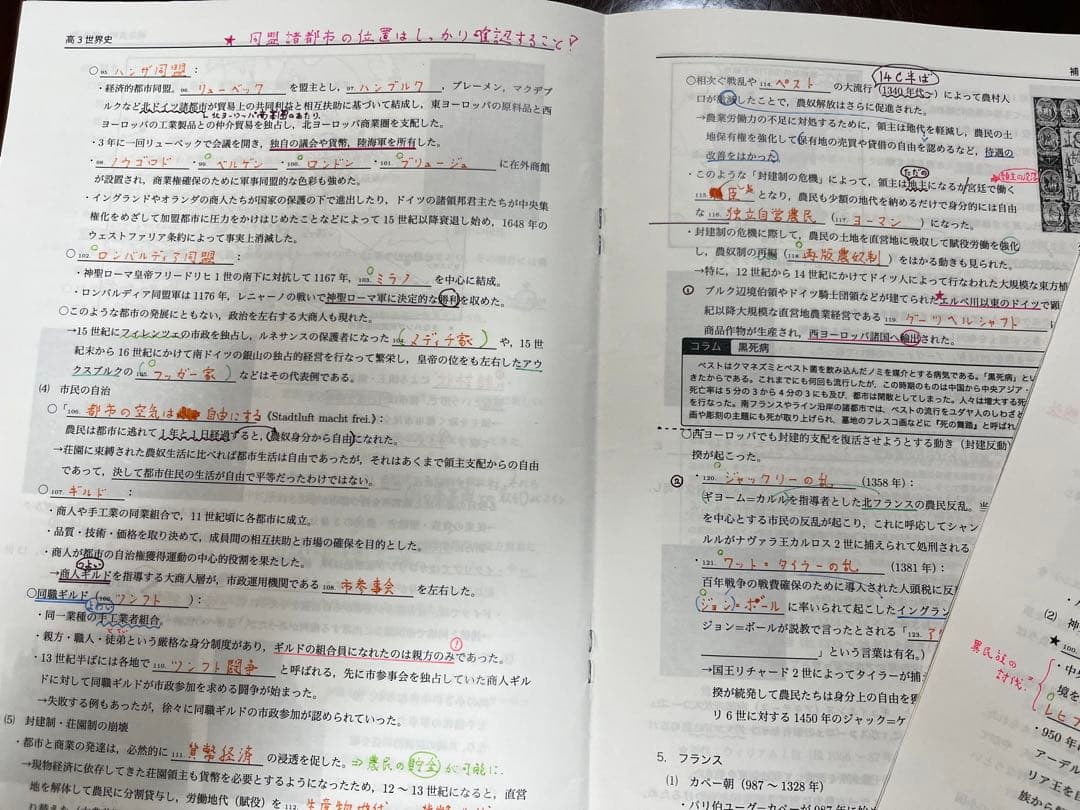 高3世界史
★ 同盟諸都市の位置はしっかり確認すること?
○95. ハンザ同盟 :
・経済的都市同盟。96. リューベック を盟主とし，97. ハンブルク，ブレーメン，マクデ
ブルクなど北ドイツ諸都市が貿易上の共同利益と相互扶助に基づいて結成し，東ヨーロッパの原料品と西
└北ヨーロッパ商業圏のあたり
ヨーロッパの工業製品との仲介貿易を独占し，北ヨーロッパ商業圏を支配した。
・3年に一回リューベックで会議を開き，独自の議会や貨幣，陸海軍を所有した。
・98. ノヴゴロド・99. ベルゲン・100. ロンドン・101. ブリュージュ に在外商館
が設置され，商業権確保のために軍事同盟的な色彩も強めた。
・イングランドやオランダの商人たちが国家の保護の下で進出したり，ドイツの諸領邦君主たちが中央集
権化をめざして加盟都市に圧力をかけはじめたことなどによって15世紀以降衰退し始め，1648年の
ウェストファリア条約によって事実上消滅した。
○102. ロンバルディア同盟 :
・神聖ローマ皇帝フリードリヒ1世の南下に対抗して1167年，103. ミラノ を中心に結成。
・ロンバルディア同盟軍は1176年，レニャーノの戦いで神聖ローマ軍に決定的な勝利を収めた。
○このような都市の発展にともない，政治を左右する大商人も現れた。
→15世紀にフィレンツェの市政を独占し，ルネサンスの保護者になった(104. メディチ家)や，15世
紀末から16世紀にかけて南ドイツの銀山の独占的経営を行なって繁栄し，皇帝の位をも左右したアウ
クスブルクの(105. フッガー家)などはその代表例である。
(4) 市民の自治
○「106. 都市の空気は 自由にする《Stadtluft macht frei.》:
農民は都市に逃れて1年と1日経過すると，(農奴身分から自由)になれた。
→荘園に束縛された農奴生活に比べれば都市生活は自由であったが，それはあくまで領主支配からの自由
であって，決して都市住民の生活が自由で平等だったわけではない。
○107. ギルド :
・商人や手工業の同業組合で，11世紀頃に各都市に成立。
・品質・技術・価格を取り決めて，成員間の相互扶助と市場の確保を目的とした。
・商人が都市の自治権獲得運動の中心的役割を果たした。
つよい
→商人ギルドを指導する大商人層が，市政運用機関である108. 市参事会 を左右した。
○同職ギルド(109. ツンフト):
よわい
・同一業種の手工業者組合。
とてい
・親方・職人・徒弟という厳格な身分制度があり，ギルドの組合員になれたのは親方のみであった。
・13世紀半ばには各地で110. ツンフト闘争 と呼ばれる，先に市参事会を独占していた商人ギル
ドに対して同職ギルドが市政参加を求める闘争が始まった。
→失敗する例もあったが，徐々に同職ギルドの市政参加が認められていった。
(5) 封建制・荘園制の崩壊
・都市と商業の発達は，必然的に111. 貨幣経済 の浸透を促した。⇒農民の貯金が可能に.
→現物経済に依存してきた荘園領主も貨幣を必要とするようになったため，12〜13世紀になると，直営
地を解体して農民に分割貸与し，労働地代（賦役）を112. 生産物地代
補
14C半ば
○相次ぐ戦乱や114. ペスト の大流行(1340年代〜)によって農村人
口が激減したことで，農奴解放はさらに促進された。
→農業労働力の不足に対処するために，領主は地代を軽減し，農民の土
地保有権を強化して保有地の売買や貸借の自由を認めるなど，待遇の
改善をはかった。
ただの
・このような「封建制の危機」によって，領主は地主になるか宮廷で働く
★領主の没落
115. 臣 となり，農民も少額の地代を納めるだけで身分的には自由
な116. 独立自営農民 (117. ヨーマン) になった。
・封建制の危機に際して，農民の土地を直営地に吸収して賦役労働を強化
し，農奴制の再編(118. 再版農奴制)をはかる動きも見られた。
→特に，12世紀から14世紀にかけてドイツ人によって行なわれた大規模な東方植
① ブルク辺境伯領やドイツ騎士団領などが建てられた★エルベ川以東のドイツで顕
紀以降大規模な直営地農業経営である119. グーツヘルシャフト
商品作物が生産され，西ヨーロッパ諸国へ輸出された。
コラム 黒死病
ペストはクマネズミとペスト菌を飲み込んだノミを媒介とする病気である。「黒死病」とい
きたからである。これまでにも何回も流行したが，この時期のものは中国から中央アジア・
死亡率は5分の3から4分の3にも及び，都市は閑散としてしまった。人々は増大する死
を行なった。南フランスやライン沿岸の諸都市では，ペストの流行をユダヤ人のしわざと
画や彫刻の主題にも死が取り上げられ，墓地のフレスコ画などに『死の舞踏』と呼ばれ
○西ヨーロッパでも封建的支配を復活させようとする動き（封建反動）
揆が起こった。
② ・120. ジャックリーの乱 (1358年):
ギヨーム=カルルを指導者とした北フランスの農民反乱。
を中心とする市民の反乱が起こり，これに呼応してシャン
ルルがナヴァラ王カルロス2世に捕えられて処刑される
・121. ワット・タイラーの乱 (1381年):
百年戦争の戦費確保のために導入された人頭税に反
(ジョン)=ボール に率いられて起こしたイングラン
ジョン=ボールが説教で言ったとされる「123. ア
」という言葉は有名。)
→国王リチャード2世によってタイラーが捕
揆が続発して農民たちは身分上の自由を獲
リ6世に対する1450年のジャック=ケ
5. フランス
(1) カペー朝（987〜1328年）
・パリ伯ユーグ=カペーが987年に
(2) 神
★100.
異民族の討伐?
・中
境を
・レヒフ
・950年
アーデル
リア王を